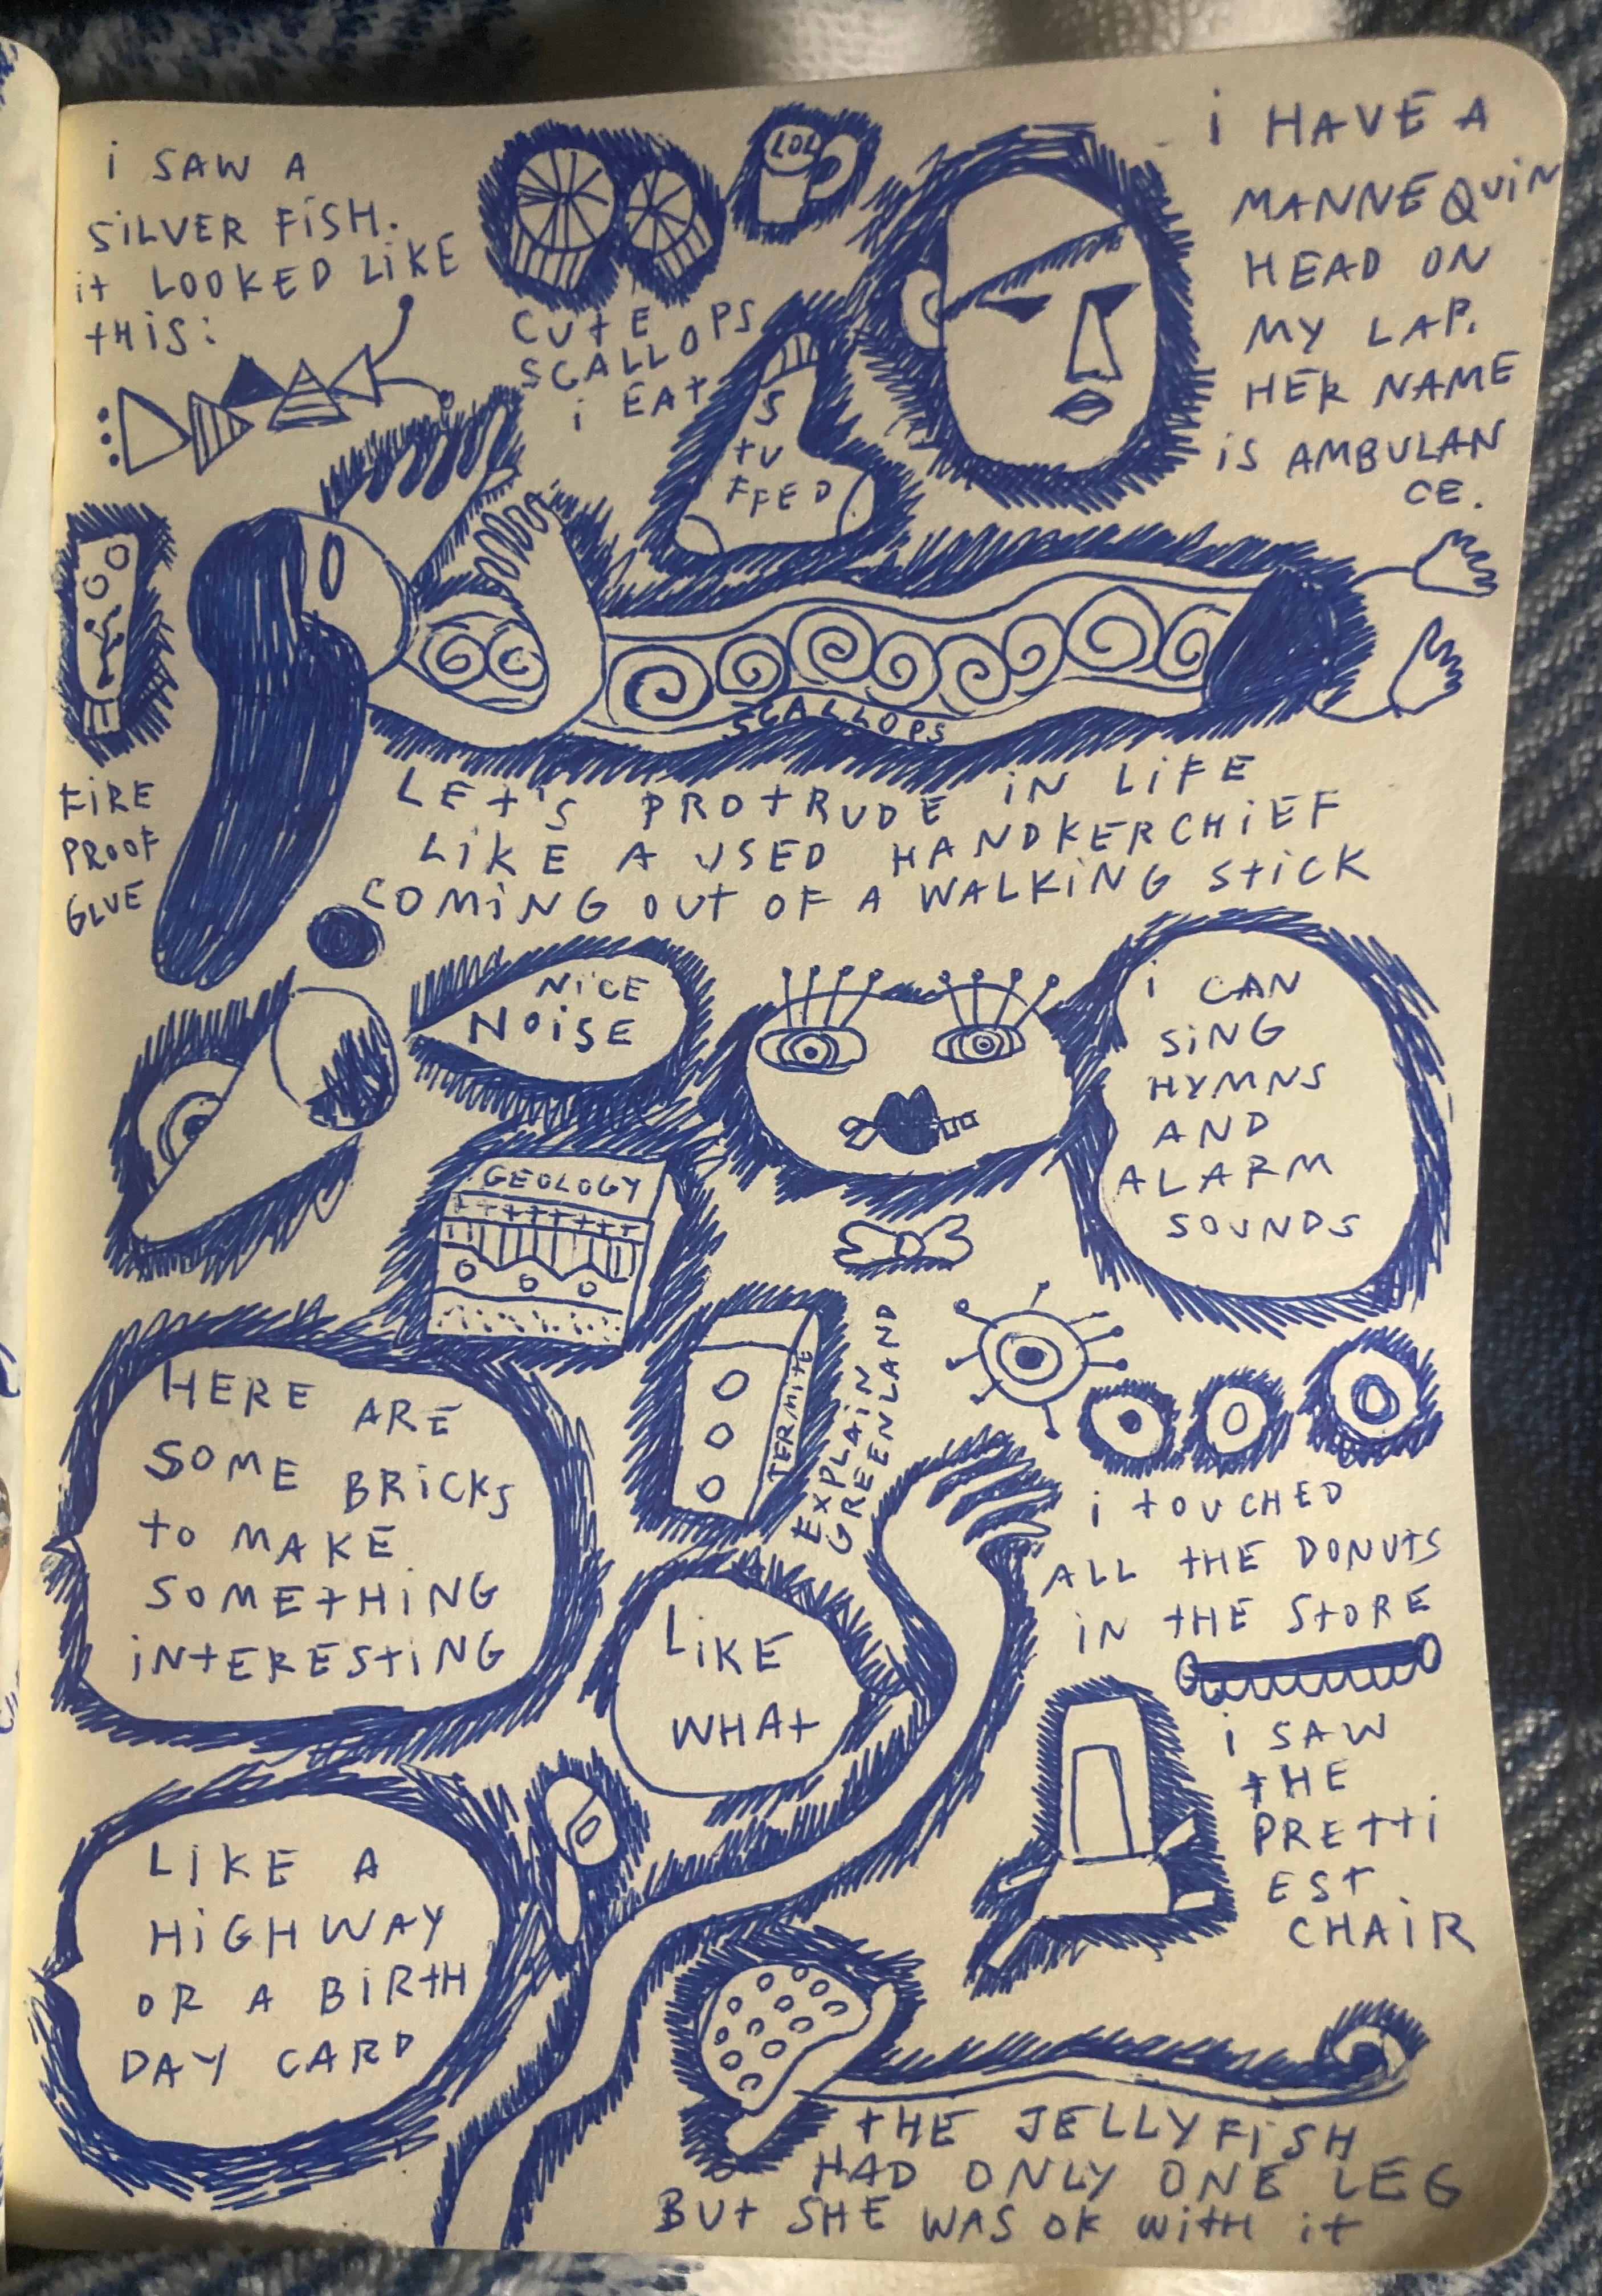 i SAW A
SiLVER FiSH.
it LOOKED LiKE
tHiS:
LOL
CUtE
SCALLOPS
i EAt
i HAVE A
MANNEQUiN
HEAD ON
MY LAP.
HER NAME
iS AMBULAN
CE.
S
tU
FFED
SCALLOPS
FiRE
PROOF
GLUE
LEt'S PROtRUDE iN LiFE
LiKE A USED HANDKERCHiEF
COMiNG OUt OF A WALKiNG StiCK
NiCE
NOiSE
i CAN
SiNG
HYMNS
AND
ALARM
SOUNDS
GEOLOGY
HERE ARE
SOME BRiCKS
tO MAKE
SOMEtHiNG
iNtEREStiNG
TERMitE
EXPLAiN
GREENLAND
LiKE
WHAt
i tOUCHED
ALL tHE DONUtS
iN tHE StORE
i SAW
tHE
PREtti
ESt
CHAiR
LiKE A
HiGHWAY
OR A BiRtH
DAY CARD
tHE JELLYFiSH
HAD ONLY ONE LEG
BUt SHE WAS OK WitH it